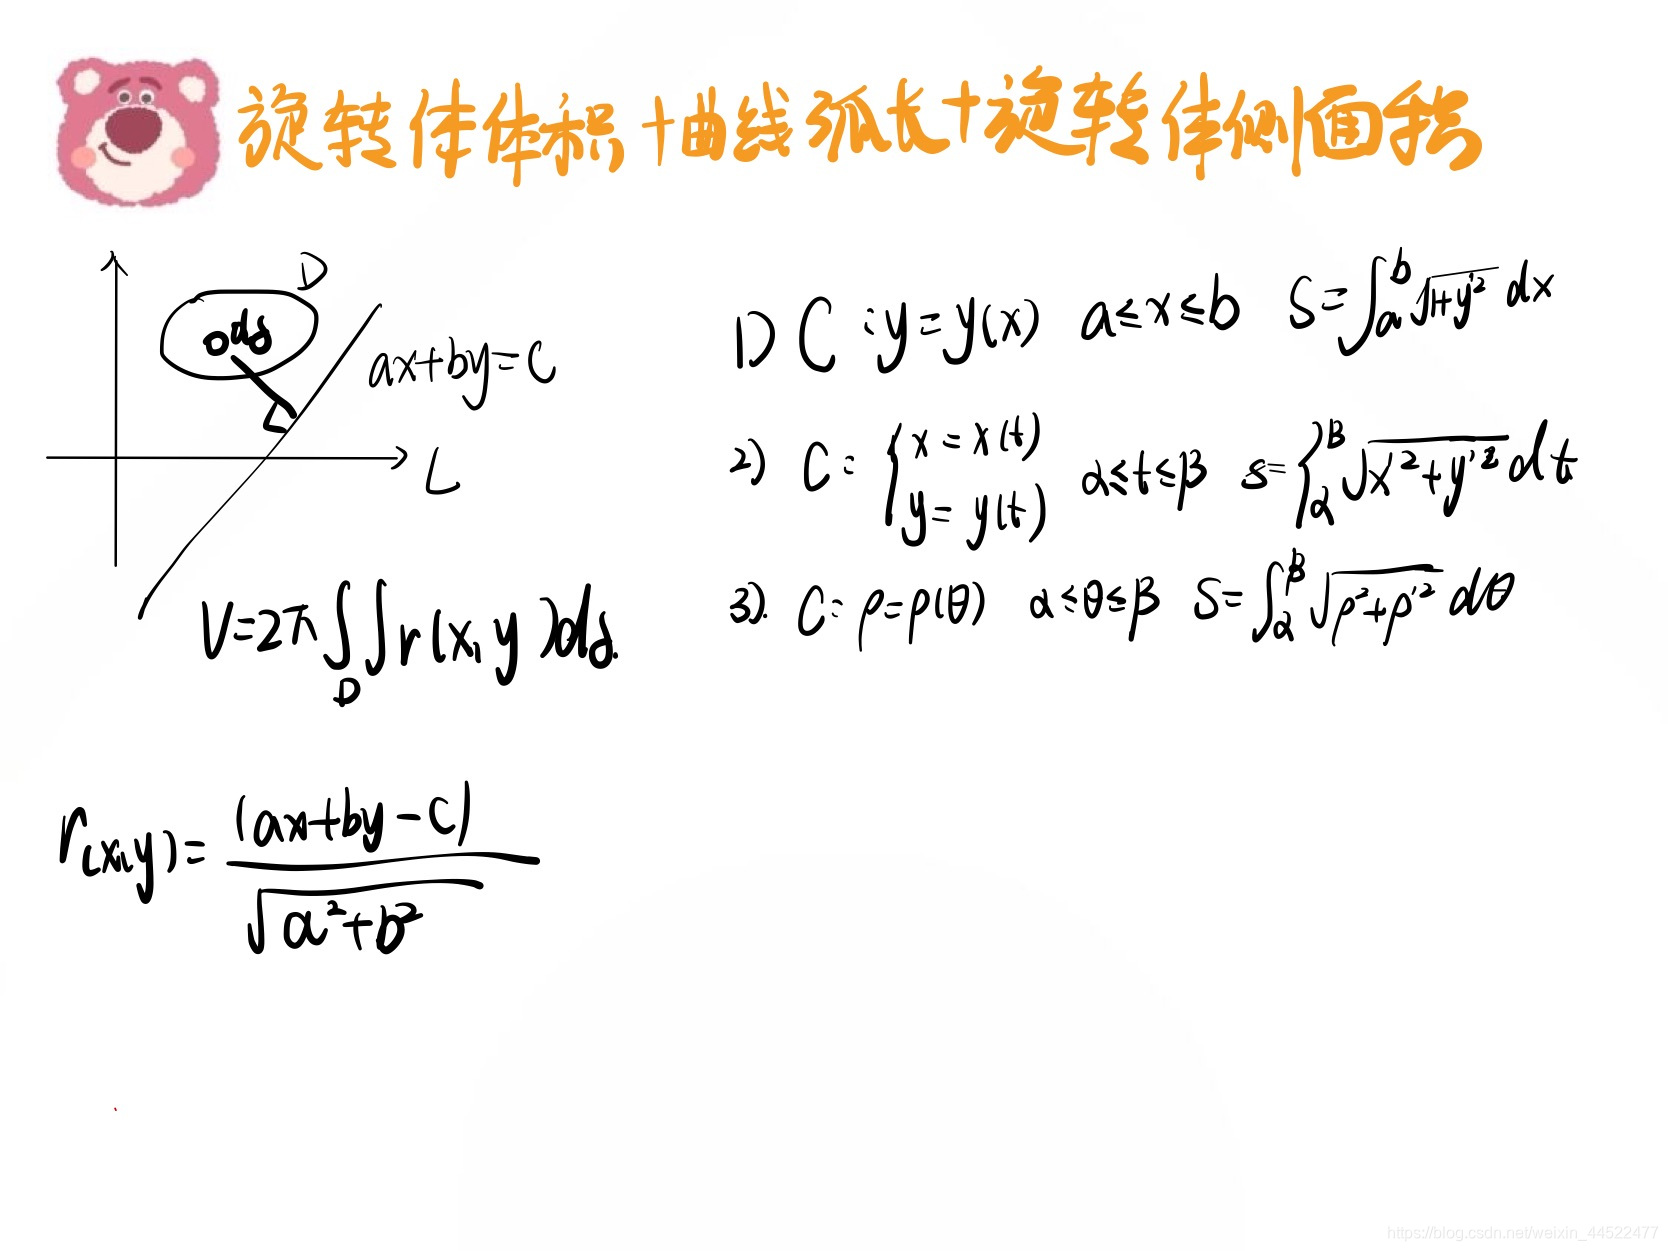 旋转体体积+曲线弧长+旋转体侧面积
D
ds
ax+by=C
L
V=2π∬_D r(x,y)ds.
r(x,y)=(ax+by-C)/√(a²+b²)
1) C:y=y(x) a≤x≤b S=∫_a^b √(1+y'²) dx
2) C:{x=x(t) y=y(t) α≤t≤β s=∫_α^β √(x'²+y'²) dt
3). C:ρ=ρ(θ) α≤θ≤β S=∫_α^β √(ρ²+ρ'²) dθ
https://blog.csdn.net/weixin_44522477